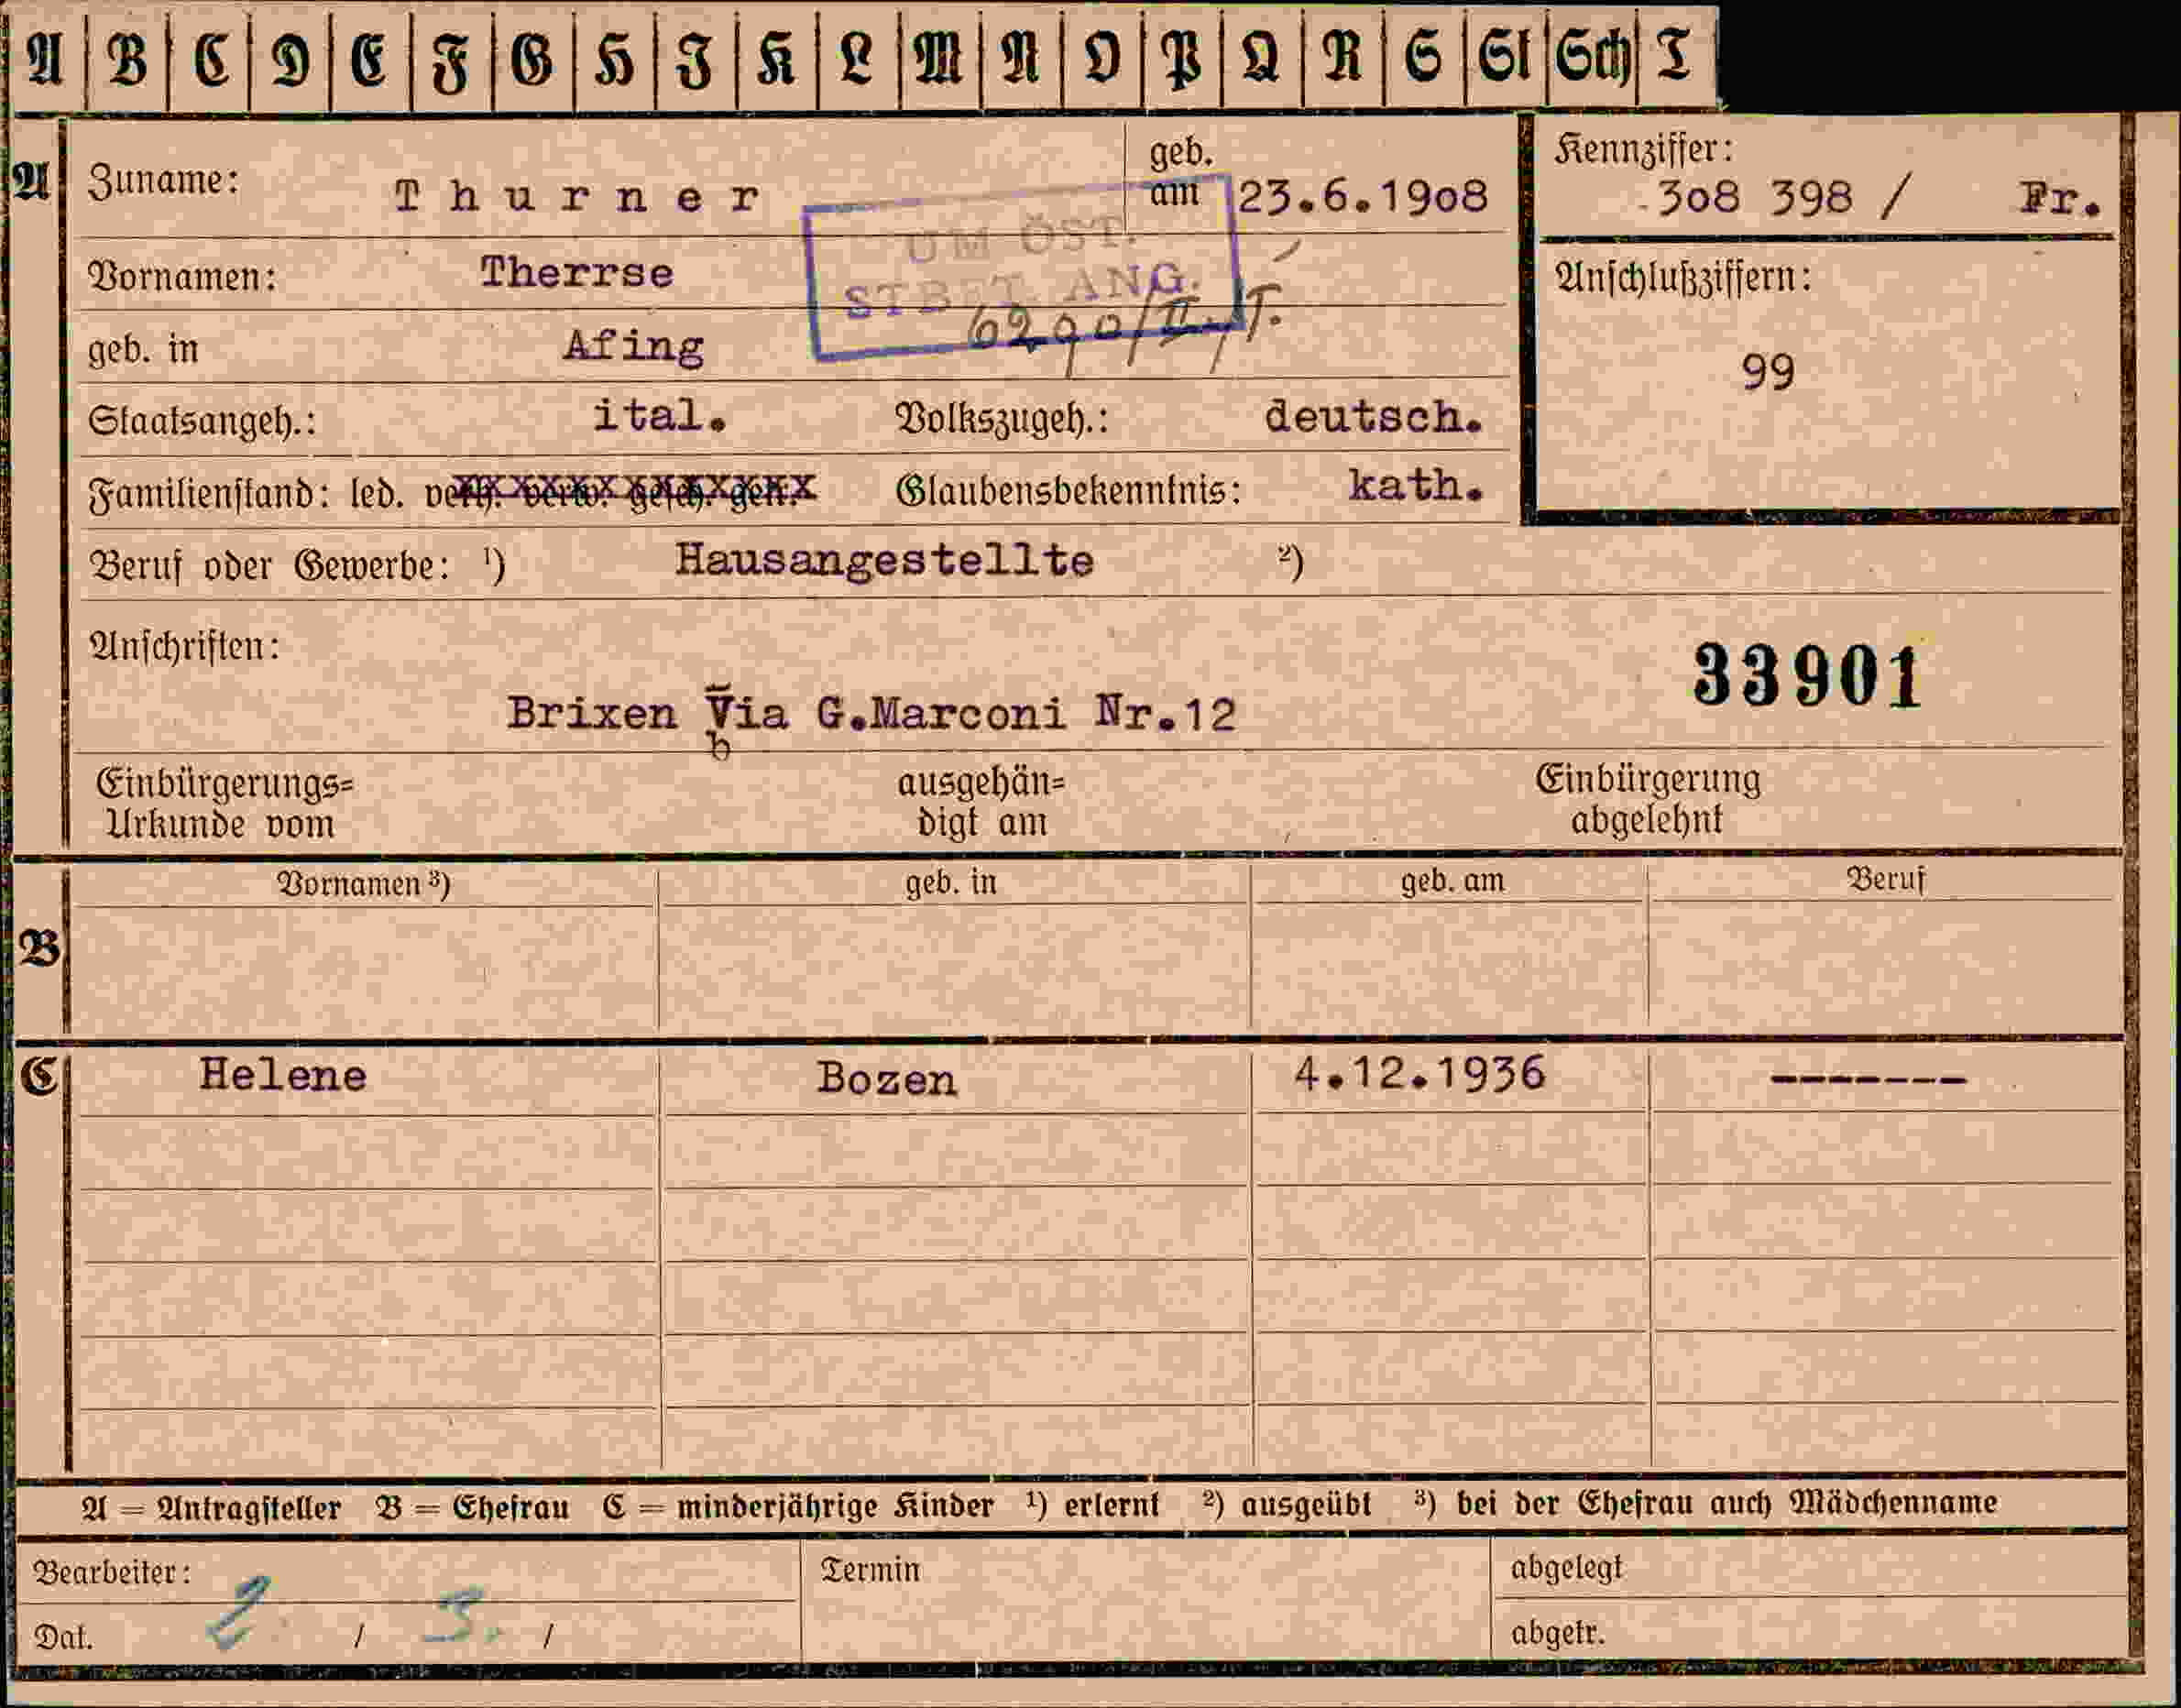 A B C D E F G H J K L M N O P Q R S St Sch T
A Zuname: Thurner geb. am 23.6.1908
Kennziffer: 308 398 / Fr.
UM ÖST.
STBET. ANG.
Vornamen: Therrse
Anschlußziffern:
99
geb. in Afing
Staatsangeh.: ital. Volkszugeh.: deutsch.
Familienstand: led. verh. verw. gesch. getr. Glaubensbekenntnis: kath.
Beruf oder Gewerbe: ¹) Hausangestellte ²)
Anschriften:
33901
Brixen Via G.Marconi Nr.12
b
Einbürgerungs=
Urkunde vom
ausgehän=
digt am
Einbürgerung
abgelehnt
Vornamen ³) geb. in geb. am Beruf
B
C Helene Bozen 4.12.1936 -------
A = Antragsteller B = Ehefrau C = minderjährige Kinder ¹) erlernt ²) ausgeübt ³) bei der Ehefrau auch Mädchenname
Bearbeiter: Termin abgelegt
Dat. 2 / 3. / abgetr.